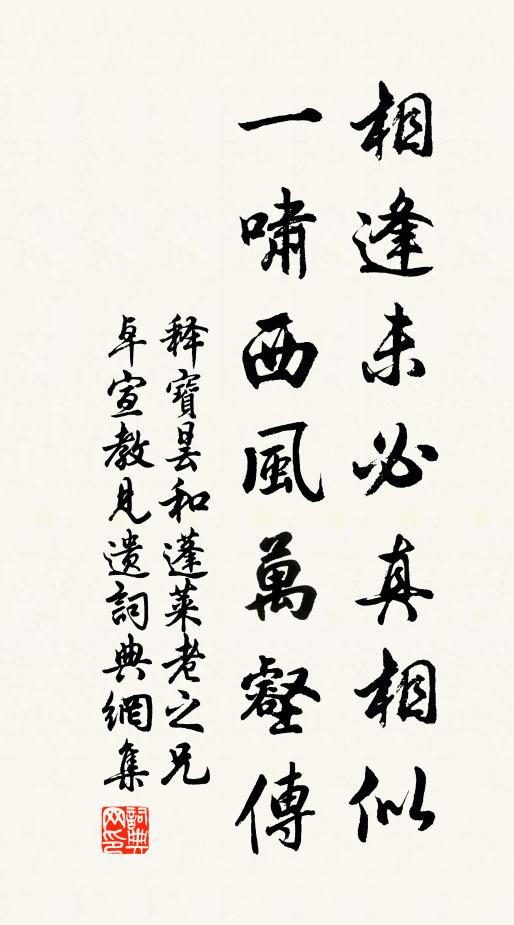 相逢未必真相似
一嘯西風萬壑傳
釋寶曇和蓬萊老之兄
卓宣教見遺詞典網集
詞典
网印